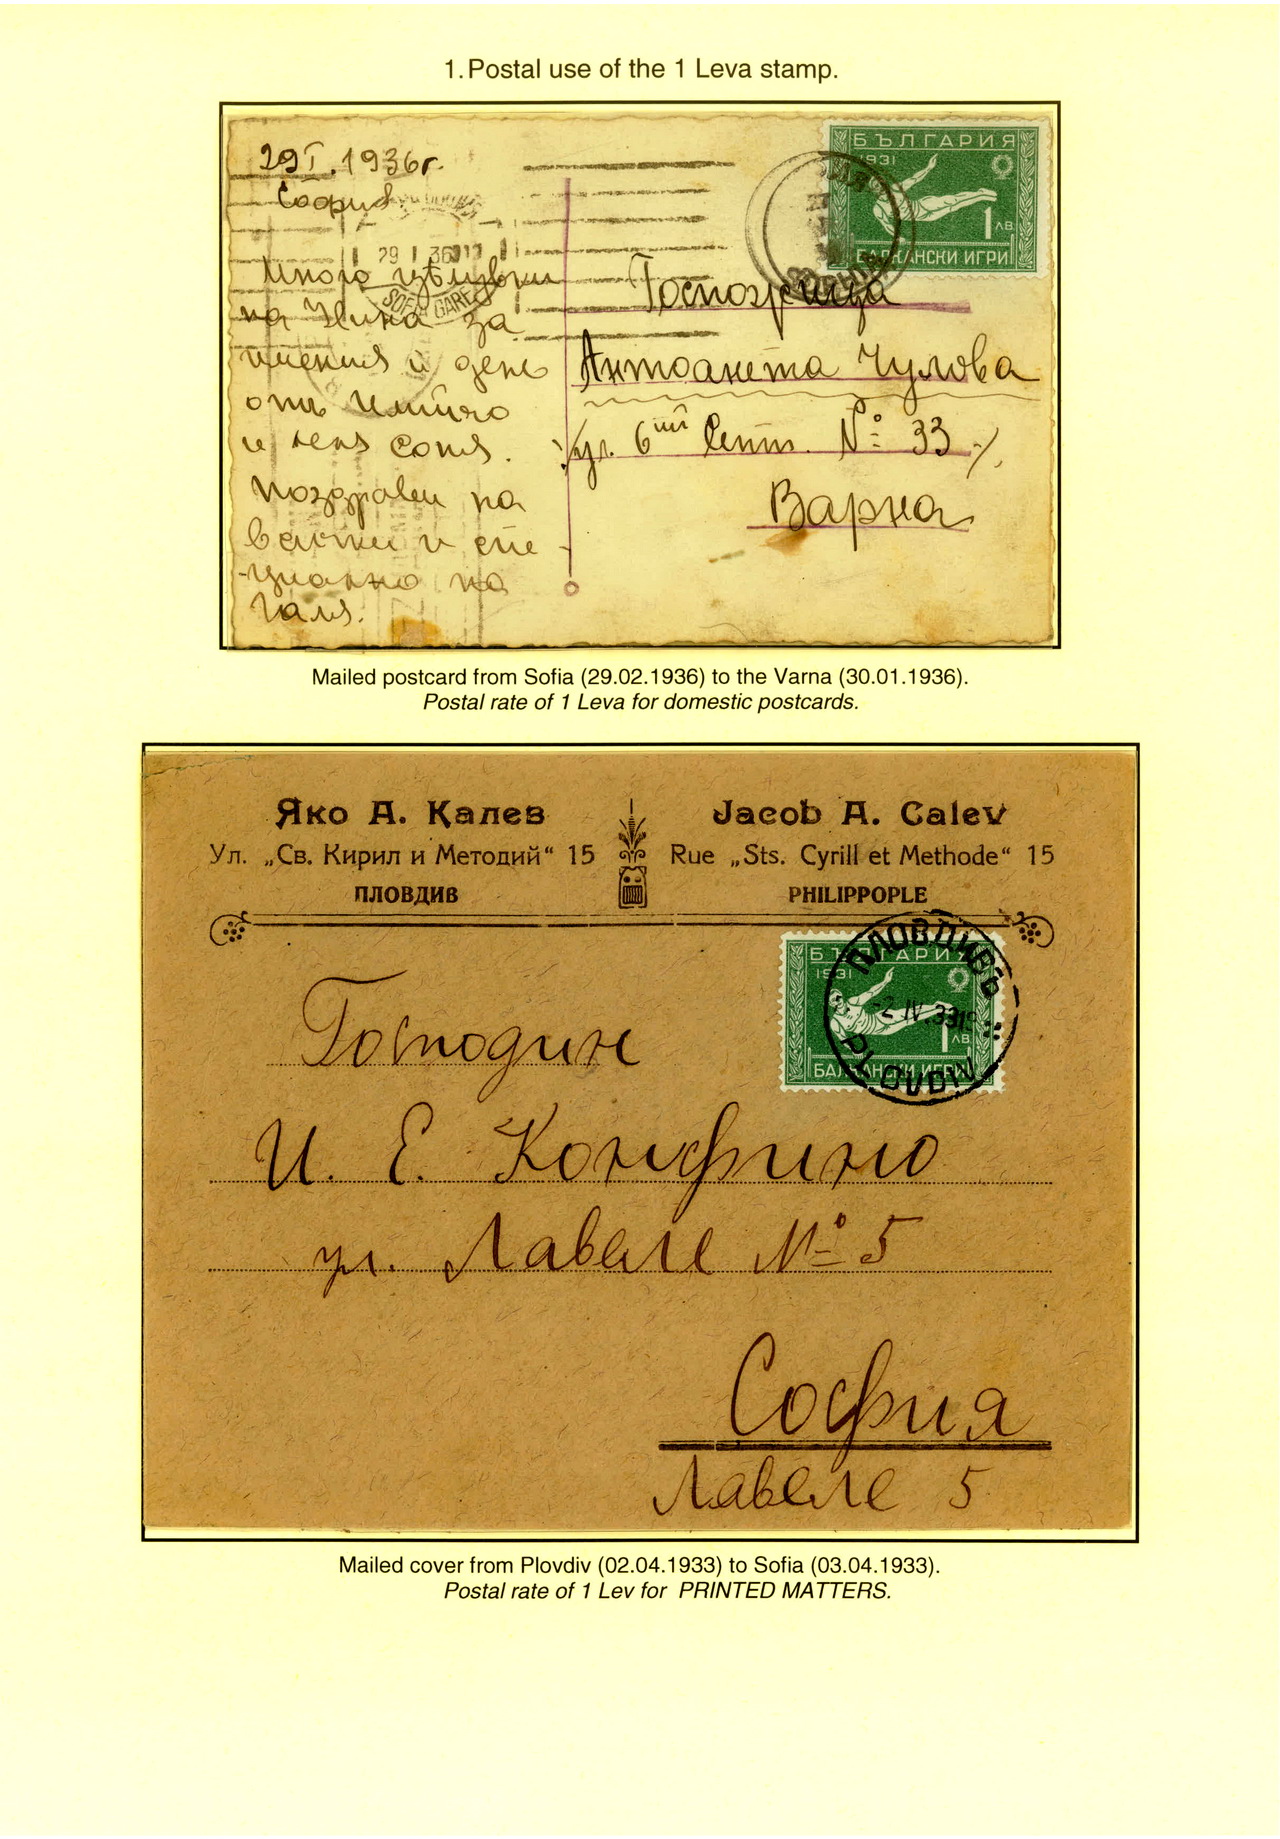 1. Postal use of the 1 Leva stamp.
29 I. 1936г.
София
29 I 36
SOFIA GARE
Много цѣлувки
на Нина за
имения и день
отъ
и леля Соня.
Поздрави на
всички и спе
-циално на
Галя.
БЪЛГАРИЯ
1931
1 ЛВ.
БАЛКАНСКИ ИГРИ
Госпожица
Антоанета Чулова
ул. 6ти Септ. № 33
Варна
Mailed postcard from Sofia (29.02.1936) to the Varna (30.01.1936).
Postal rate of 1 Leva for domestic postcards.
Яко А. Калев
Ул. „Св. Кирил и Методий“ 15
ПЛОВДИВ
Jacob A. Calev
Rue „Sts. Cyrill et Methode“ 15
PHILIPPOPLE
БЪЛГАРИЯ
1931
1 ЛВ.
БАЛКАНСКИ ИГРИ
ПЛОВДИВЪ
-2 IV.33
PLOVDIV
Господин
И. Е. Конфино
ул. Лавеле № 5
София
Лавеле 5
Mailed cover from Plovdiv (02.04.1933) to Sofia (03.04.1933).
Postal rate of 1 Lev for PRINTED MATTERS.